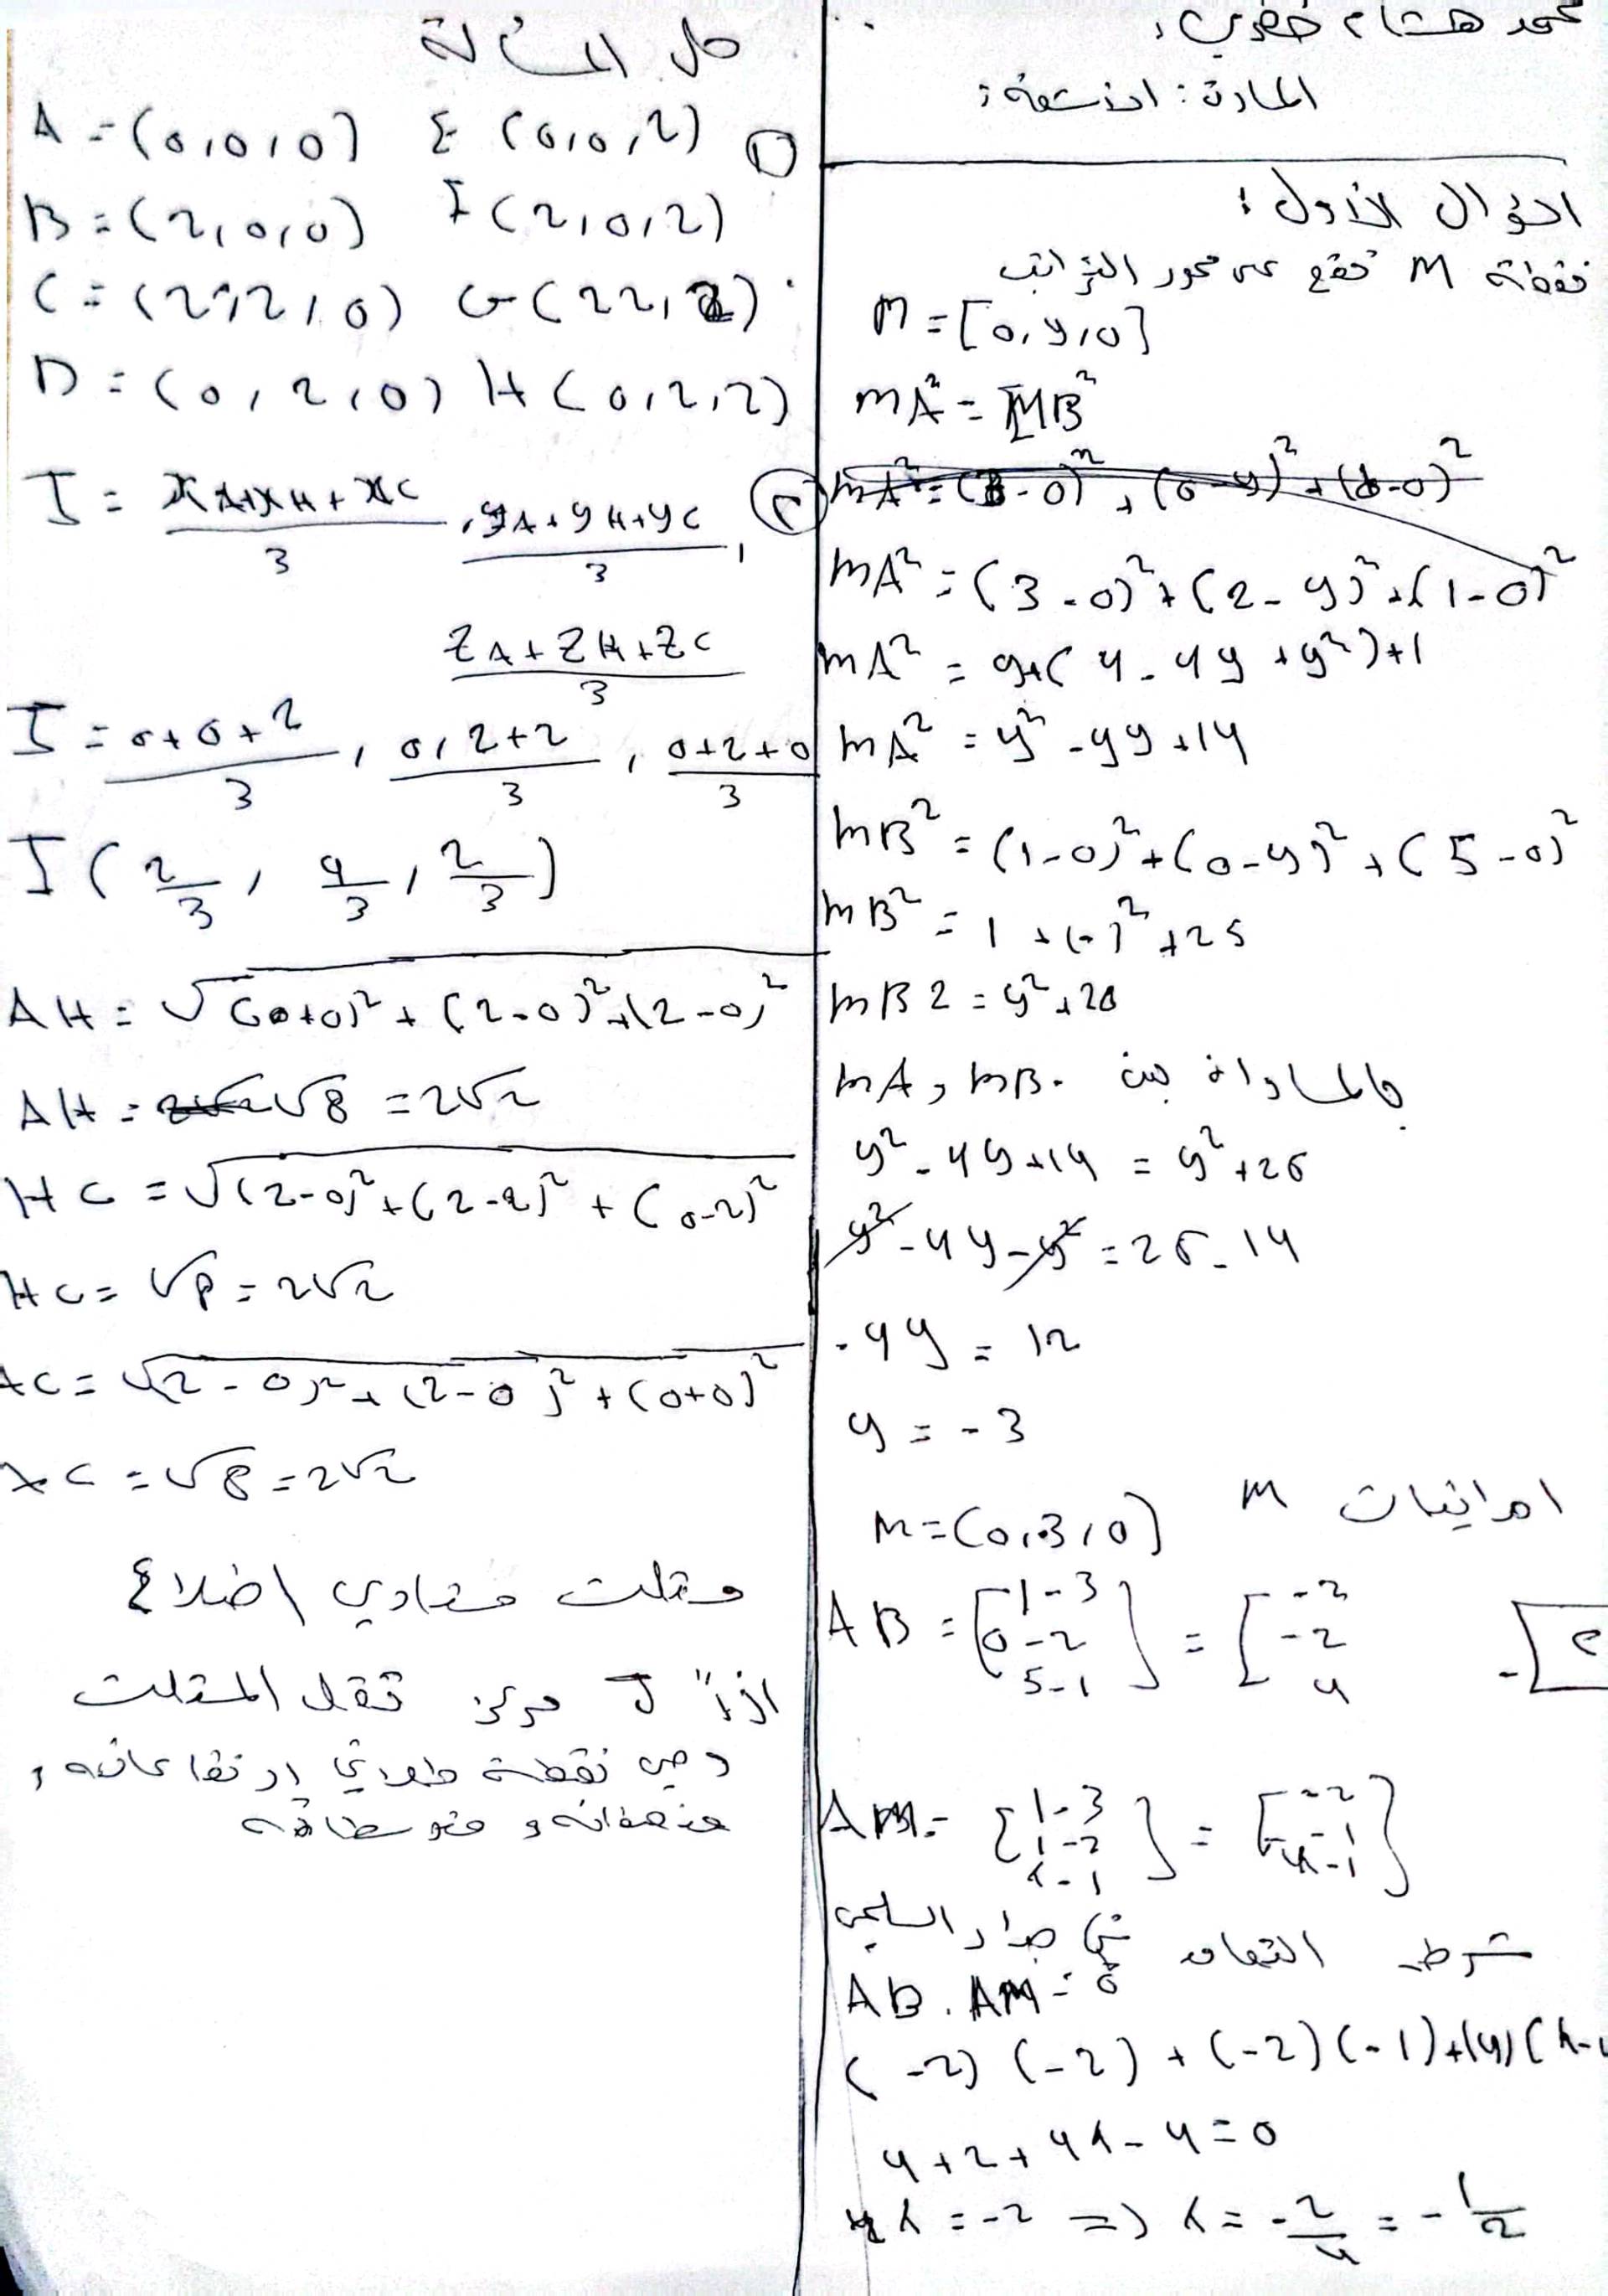 محمد هشام خضري:
المادة: الأشعة:
السؤال الأول:
نقطة M تقع على محور التراتيب
M = [0, y, 0]
mA² = MB²
mA² = (3-0)² + (2-y)² + (1-0)²
mA² = 9+(4-4y+y²)+1
mA² = y²-4y+14
mB² = (1-0)² + (0-y)² + (5-0)²
mB² = 1 + (-)² + 25
mB2 = y²+26
بالمساواة بين mA, mB.
y²-4y+14 = y²+26
y²-4y-y² = 26-14
-4y = 12
y = -3
احداثيات M
M = (0,-3,0)
AB = [1-3 0-2 5-1] = [-2 -2 4
AM = [1-3 1-2 λ-1] = [-2 -1 λ-1]
شرط التعامد
AB . AM = 0
(-2)(-2) + (-2)(-1) + (4)(λ-1
4+2+4λ-4=0
4λ = -2 => λ = -2/4 = -1/2
حل المسألة
A = (0,0,0) E (0,0,2) ①
B = (2,0,0) F (2,0,2)
C = (2,2,0) G (22,2)
D = (0,2,0) H (0,2,2)
I = xA+xH+xC/3, yA+yH+yC/3, ②
zA+zH+zC/3
I = 0+0+2/3, 0,2+2/3, 0+2+0/3
I (2/3, 4/3, 2/3)
AH = √(0+0)² + (2-0)² + (2-0)²
AH = √8 = 2√2
HC = √(2-0)² + (2-2)² + (0-2)²
HC = √8 = 2√2
AC = √(2-0)² + (2-0)² + (0+0)²
AC = √8 = 2√2
مثلث متساوي اضلاع
اذاً I مركز ثقل المثلث
وهي نقطة تلاقي ارتفاعاته و
منصفاته و متوسطاته